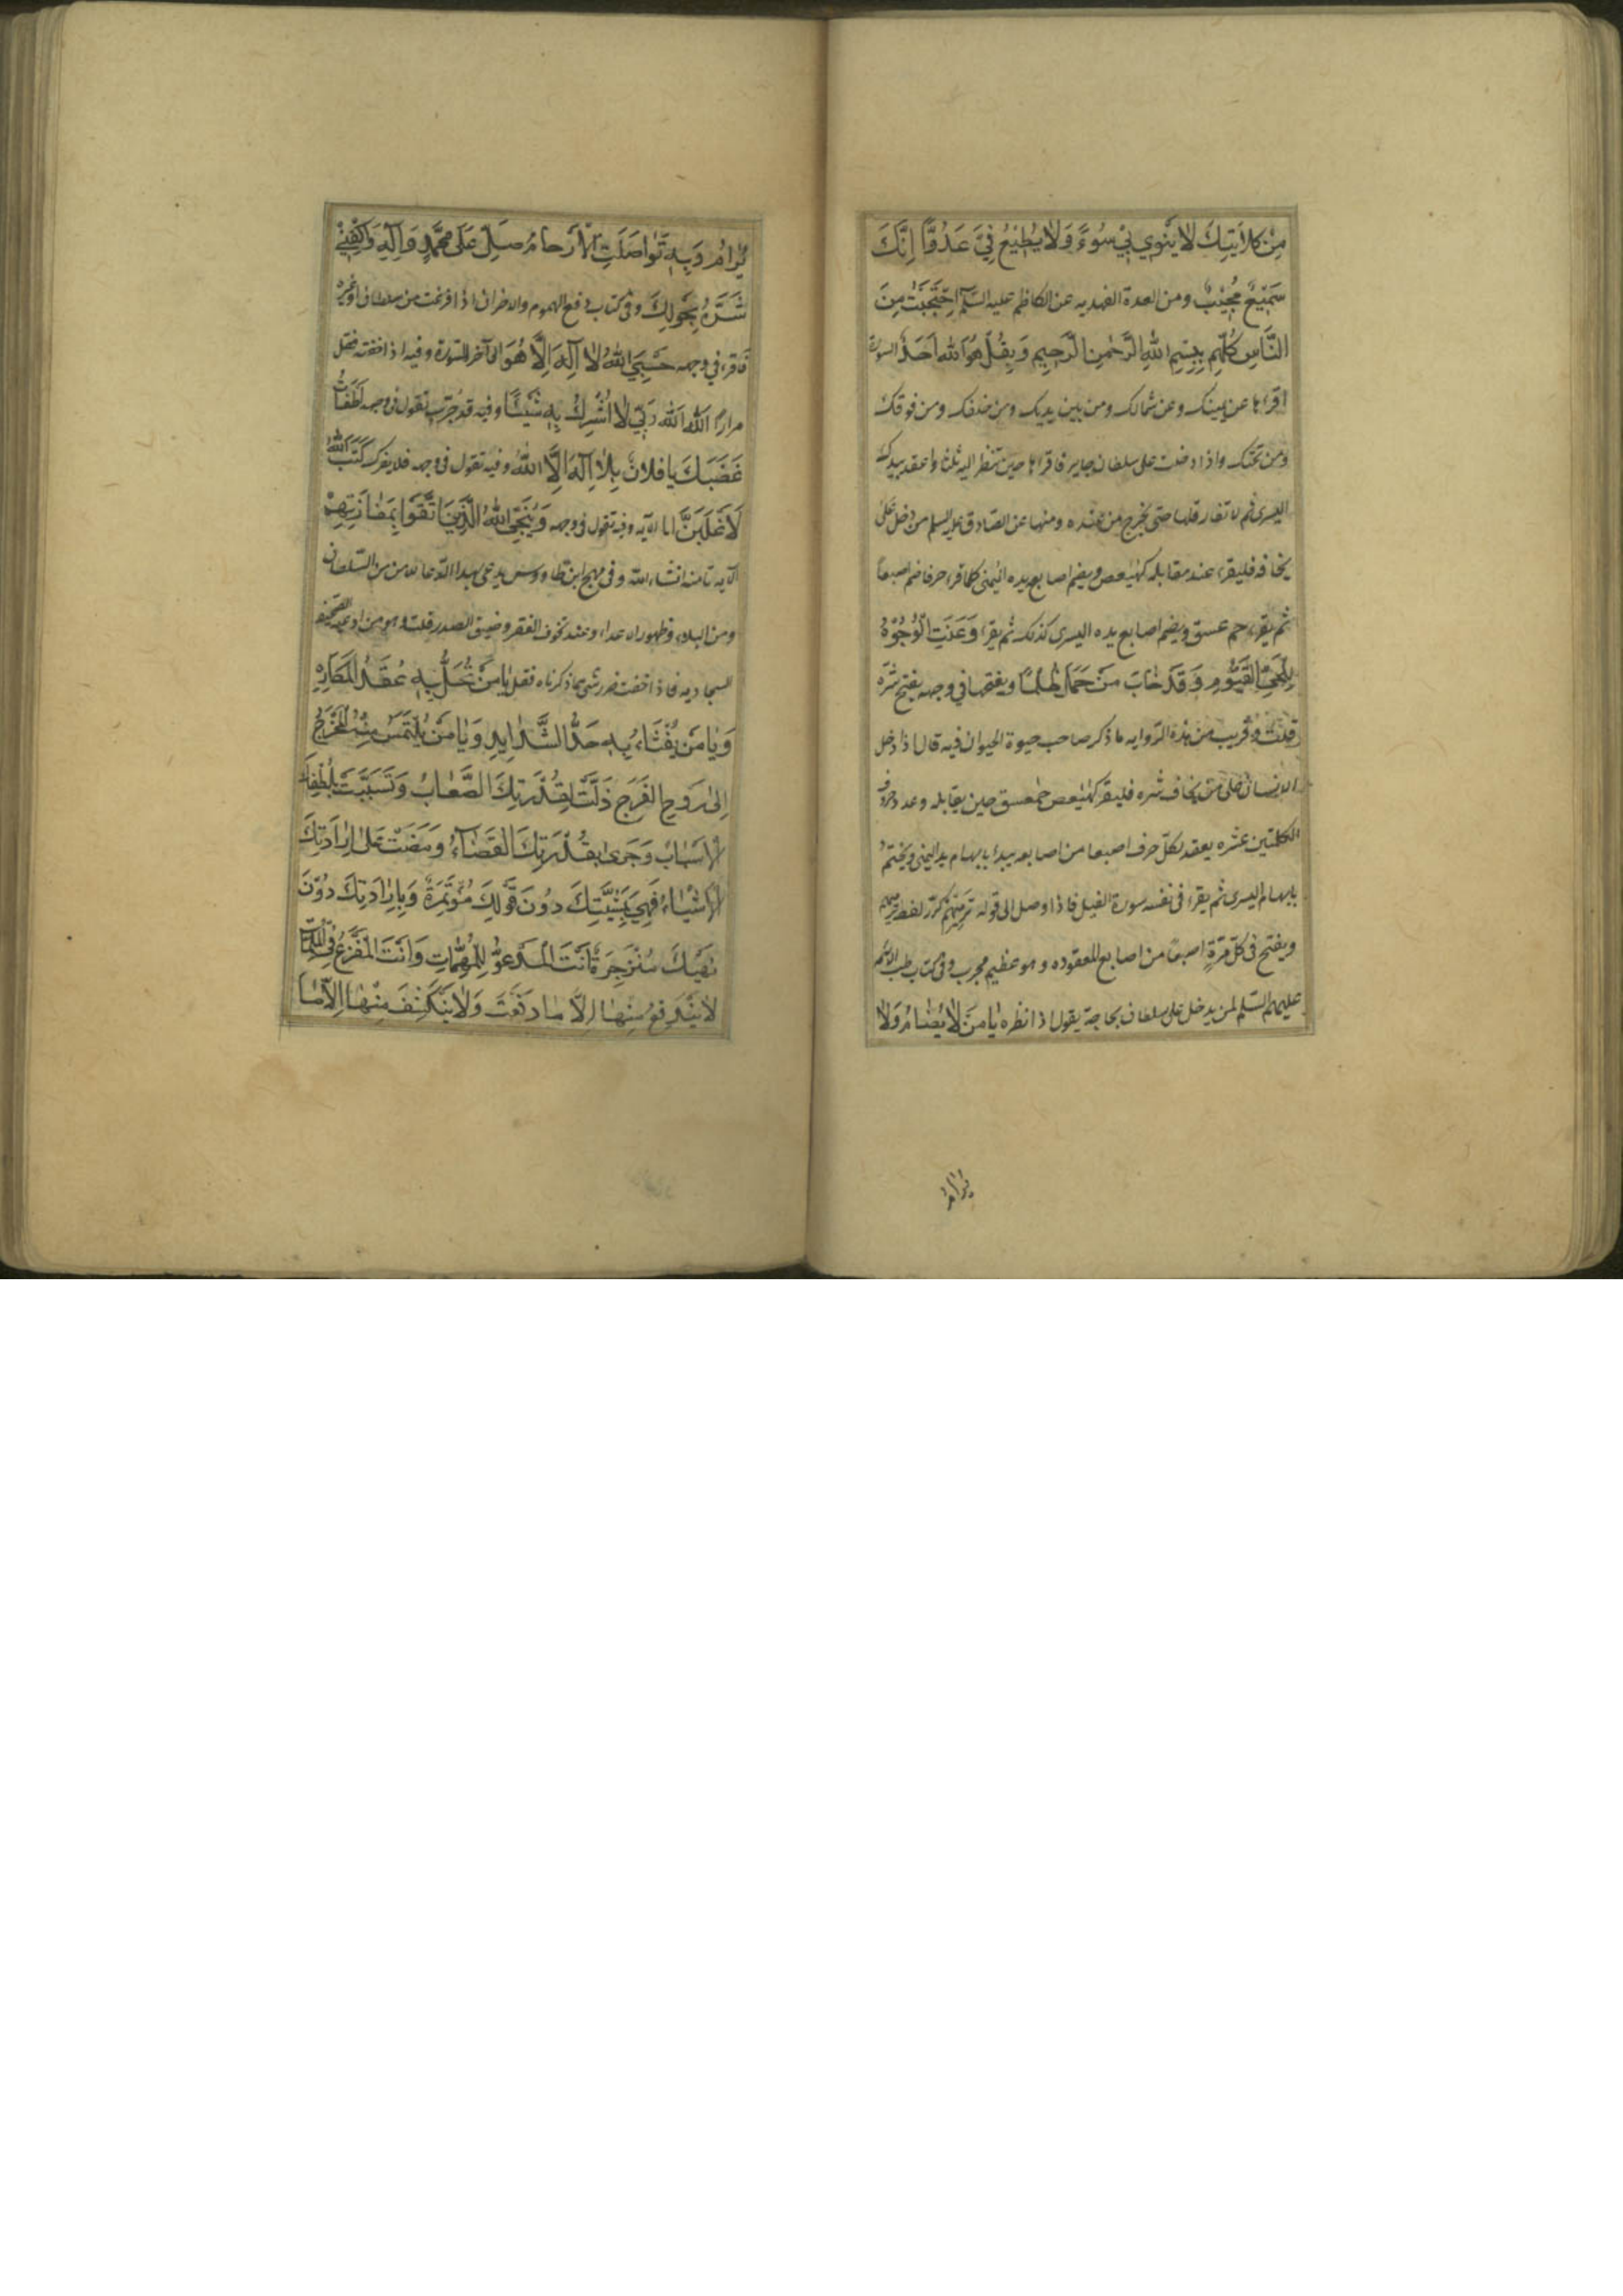 مِنْ كلايتِكَ لا يَنْوي بي سُوءً وَلا يُطِيْعُ فِيَّ عَدُوًّا اِنَّكَ
سَمِيْعٌ مُجِيْبٌ ومن العدة الفهديه عن الكاظم عليه السّلم اِحْتَجَبْتُ مِنَ
النَّاسِ كُلِّهِم بِبِسْمِ اللهِ الرَّحْمٰنِ الرَّحِيمِ وَبِقُلْ هُوَ اللهُ اَحَدٌ السورة
اقراها عن يمينك وعن شمالك ومن بين يديك ومن خلفك ومن فوقك
ومن تحتك واذا دخلت على سلطان جاير فاقراها حين تنظر اليه ثلثا واعقد بيدك
اليسرى ثم لا تفارقها حتى تخرج من عنده ومنها عن الصّادق عليه السلم من دخل على
يخافه فليقرء عند مقابله كهيعص ويضم اصابع يده اليمنى كلما قرء حرفا ضم اصبعًا
ثم يقرء حم عسق ويضم اصابع يده اليسرى كذلك ثم يقرء وَعَنَتِ الْوُجُوْهُ
لِلْحَيِّ القَيُّومِ وَقَدْ خابَ مَنْ حَمَلَ ظُلْمًا ويفتحها في وجهه يفتح شرّه
قلت وقريب من هذه الرّوايه ما ذكر صاحب حيوة الحيوان فيه قال اذا دخل
الانسان على من يخاف شره فليقرء كهيعص حمعسق حين يقابله وعدد حروف
الكلمتين عشره يعقد لكلّ حرف اصبعا من اصابعه يبدء بابهام يد اليمنى ويختم
بابهام اليسرى ثم يقرء في نفسه سورة الفيل فاذا وصل الى قوله تَرْمِيْهِمْ كرّر لفظ ترميهم
ويفتح في كلّ مَرّةٍ اصبعًا من اصابع المعقوده وهو عظيم مجرب وفي كتاب طب الائمه
عليهم السّلم لمن يدخل على سلطان بحاجة يقول اذا نظره يا مَنْ لا يُضامُ وَلا
يُرامُ
يُرامُ وَبِهِ تَواصَلَتِ الْاَرحامُ صَلِّ عَلى مُحَمَّدٍ وَآلِهِ وَاكْفِنِي
شَرَّهُ بِحَولِكَ وفي كتاب دفع الهموم والاحزان اذا فزعت من سلطان او غيره
فاقرء في وجهه حَسْبِيَ اللهُ لا اِلٰهَ اِلَّا هُوَ الى آخر السّورة وفيه اذا خفته فقل
مرارًا اللهُ اَللهُ رَبِّي لا اُشْرِكُ بِهِ شَيْئًا وفيه قد جرّب تقول في وجهه اَطْفَأتُ
غَضَبَكَ يا فلانُ بِلا اِلٰهَ اِلَّا اللهُ وفيه تقول في وجهه فلا يضرك كَتَبَ اللهُ
لَاَغْلِبَنَّ انا الآيه وفيه تقول في وجهه وَيُنَجِّي اللهُ الَّذِيْنَ اتَّقَوْا بِمَفازَتِهِمْ
الآيه تامنه انشاء الله وفي مهج ابن طاوس يدعى بهذا الدّعا للامن من السّلطان
ومن البلاء وظهور الاعداء وعند تخوف الفقر وضيق الصدر قلت وهو من ادعيه الصّحيفه
السجاديه فاذا خفت ضرر شيء مما ذكرناه فقل يا مَنْ تُحَلُّ بِهِ عُقَدُ الْمَكَارِهِ
وَيا مَنْ يُفْثَاءُ بِهِ حَدُّ الشَّدايِدِ وَيا مَنْ يُلْتَمَسُ مِنْهُ الْمَخْرَجُ
اِلى رَوحِ الفَرَجِ ذَلَّتْ لِقُدْرَتِكَ الصِّعابُ وَتَسَبَّبَتْ بِلُطْفِكَ
الْاَسْبابُ وَجَرى بِقُدْرَتِكَ القَضَاءُ وَمَضَتْ عَلى اِرادَتِكَ
الْاَشْياءُ فَهِيَ بِمَشِيَّتِكَ دُونَ قَوْلِكَ مُؤْتَمِرَةٌ وَبِاِرادَتِكَ دُوْنَ
نَهْيِكَ مُنْزَجِرَةٌ اَنْتَ الْمَدْعُوُّ لِلْمُهِمّاتِ وَاَنْتَ الْمَفْزَعُ فِي المُلِمّاتِ
لا يَنْدَفِعُ مِنْها اِلَّا ما دَفَعْتَ وَلا يَنْكَشِفُ مِنْها اِلَّا ما